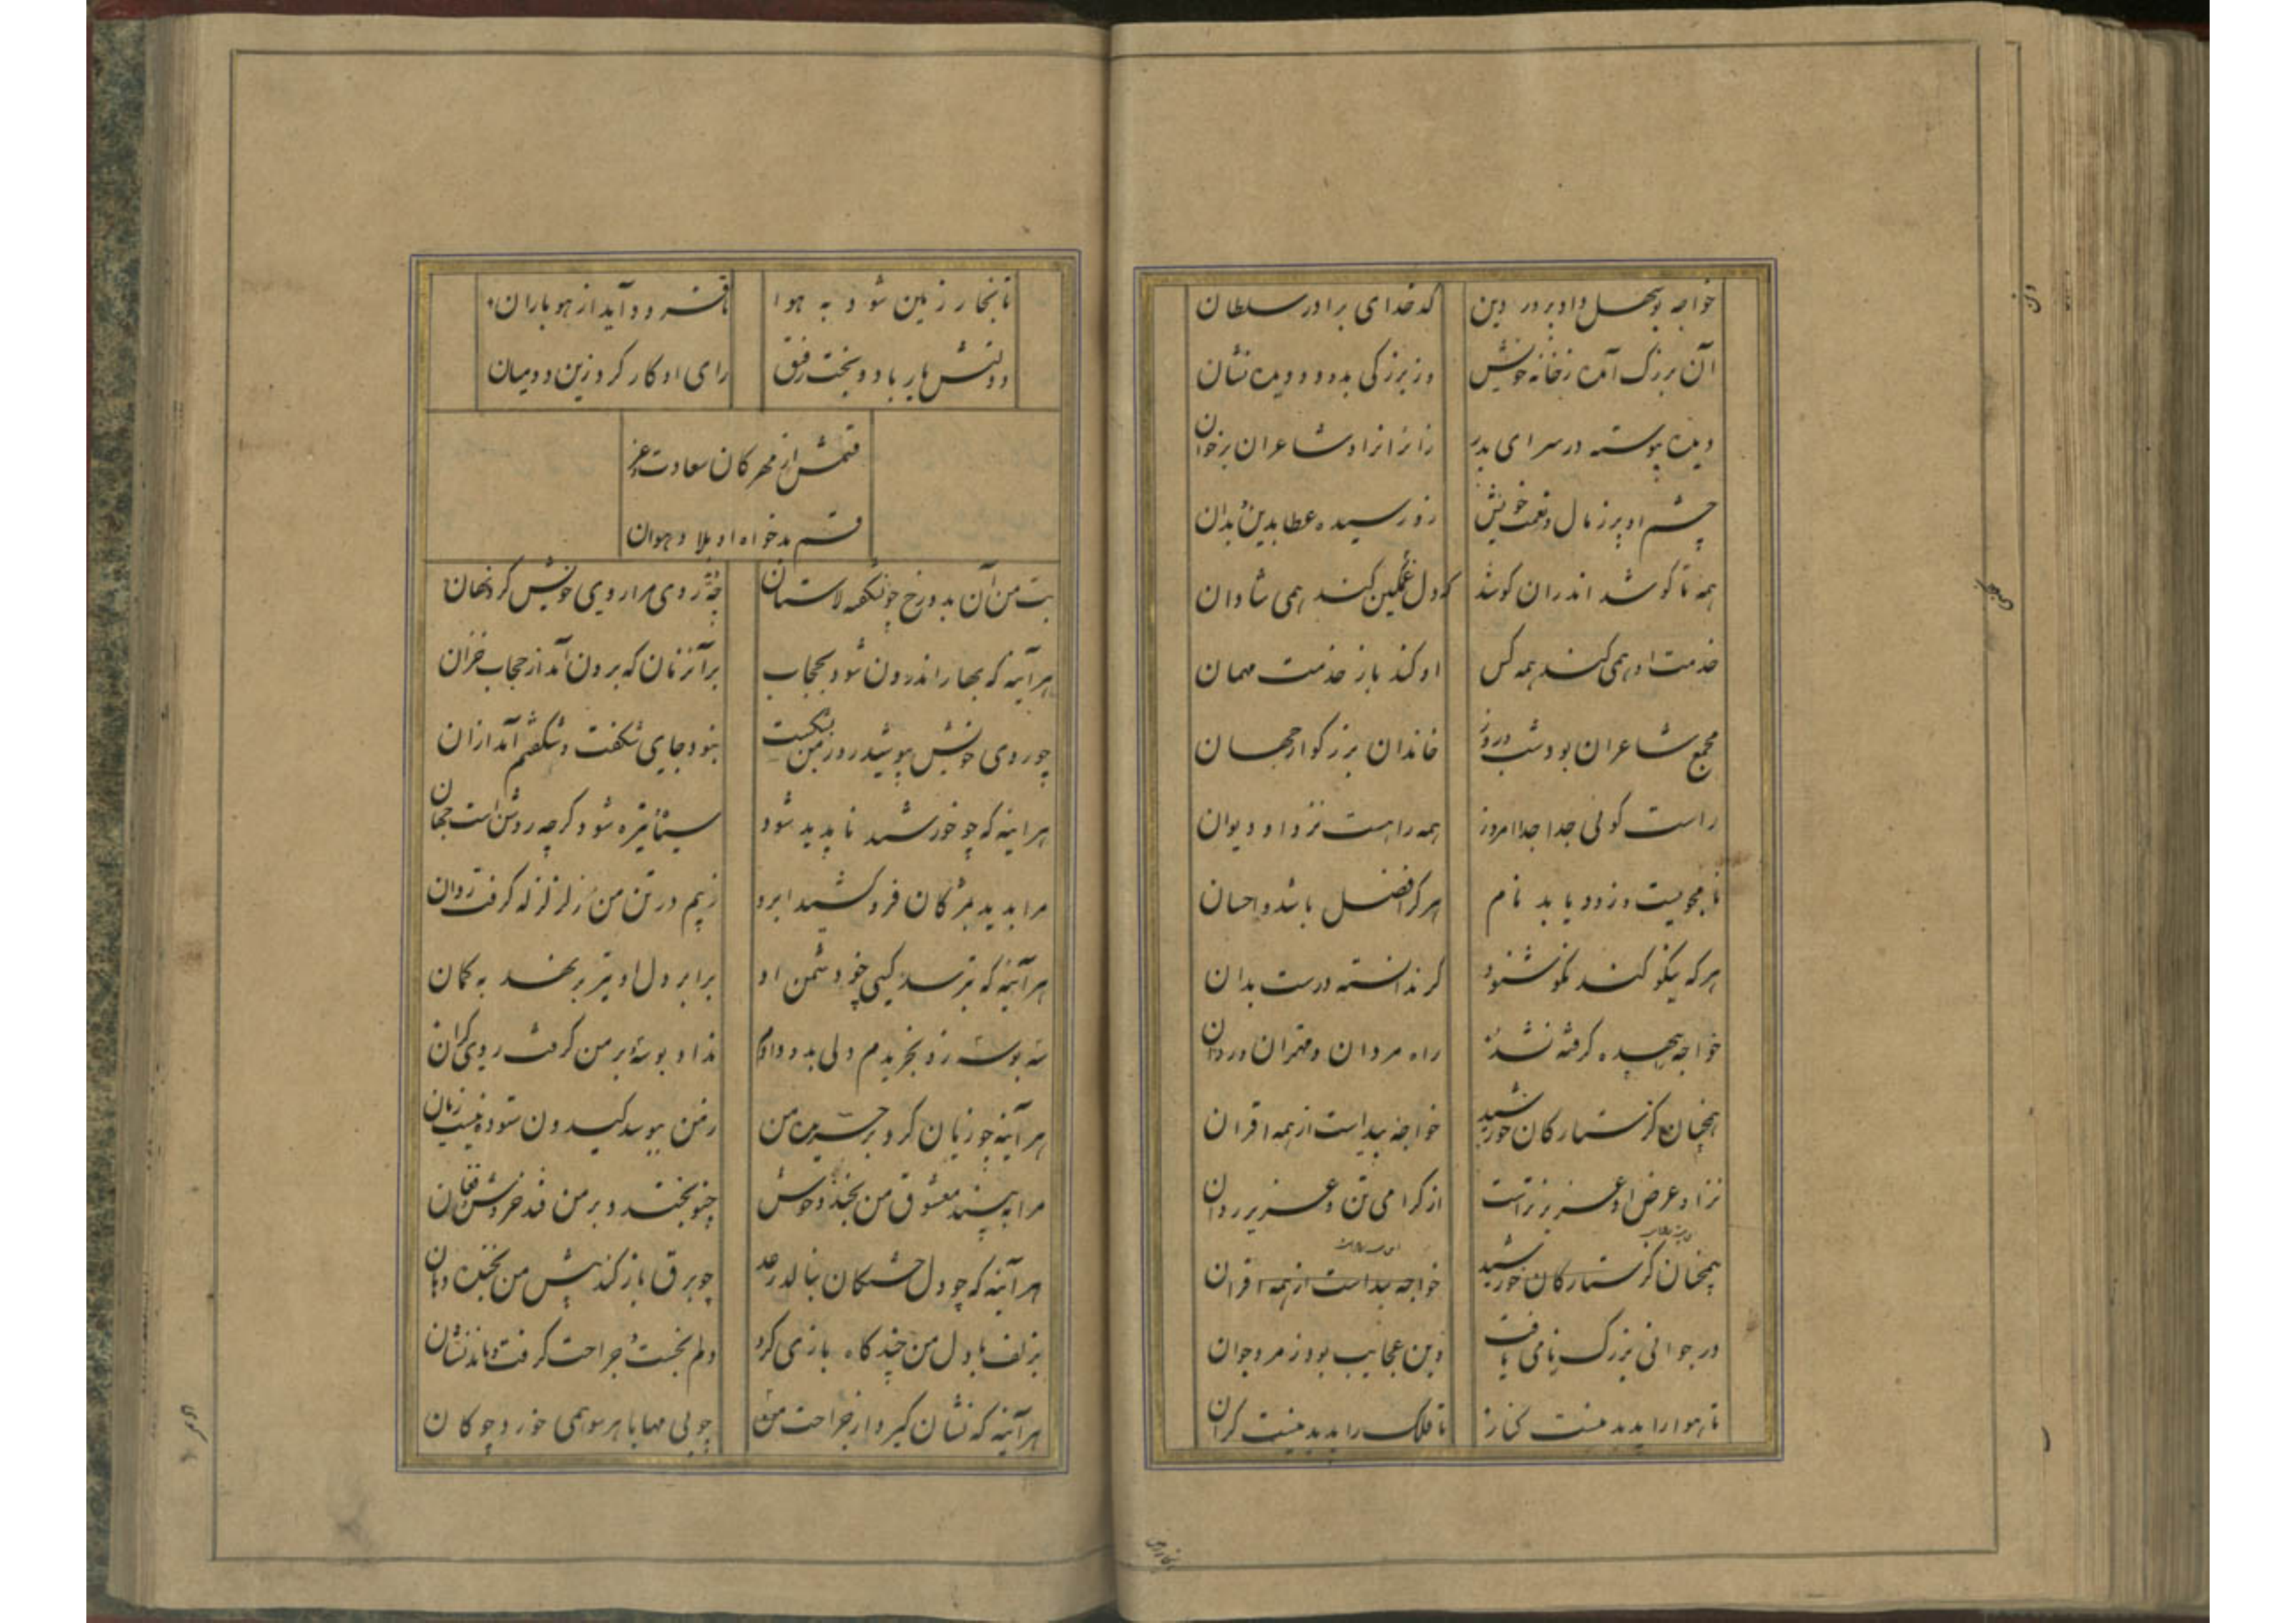 خواجه بوسهل داد پرور دین
کدخدای برادر سلطان
آن بزرگ آمده ز خانه خویش
وز بزرگی بدو دویده نشان
دیده پیوسته در سرای پدر
زائران را و شاعران بر خوان
چشم او پر ز مال و نعمت خویش
زو رسیده عطا بدین و بدان
همه تا کوشد اندران کوشد
که دل غمگین کند همی شادان
خدمت او همی کند همه کس
او کند باز خدمت مهمان
مجمع شاعران بود شب و روز
خاندان بزرگوار جهان
راست گوئی جدا جدا امروز
همه را هست نزد او دیوان
نامجویست و زود یابد نام
هر که را فضل باشد و احسان
هر که نیکو کند نکو شنود
گر ندانسته درست بدان
خواجه بیهده گرفته نشد
راه مردان و مهتران
همچنان کز ستارگان خورشید
خواجه پیداست از همه اقران
نزد او عرض او عزیزتر است
از گرامی تن و عزیز روان
همچنان کز ستارگان خورشید
خواجه پیداست از همه اقران
در جوانی بزرگ نامی یافت
وین عجایب بود ز مرد جوان
تا هوا را پدید نیست کنار
تا فلک را پدید نیست کران
تا بخار زمین شود به هوا
تا فرود آید از هو باران
دولتش یار باد و بخت رفیق
رای او کار کرد زین دو میان
قسمش از مهرگان سعادت و عز
قسم بدخواه او بلا و هوان
بت من آن بدو رخ چو شکفته لاستان
چو روی مرا روی خویش کرد نهان
هر آئنه که بهار اندرون شود بحجاب
بر آن زمان که برون آمد از حجاب خزان
چو روی خویش بپوشید روز من بشکست
نبود جای شگفت و شگفتم آمد از آن
هر اینه که چو خورشید ناپدید شود
سیاه و تیره شود گرچه روشن است جهان
مرا بدید بمژگان فرو کشید ابرو
ز بیم در تن من زلزله گرفت روان
هر آئنه که بترسد کسی چو دشمن او
برابر دل او تیر برنهد به کمان
سه بوسه زو بخریدم دلی بدو دادم
نداد بوسه و بر من گرفت روی گران
هر آئنه چو زیان کرد بر خریده من
مرا ببیند معشوق من بخندد خوش
چنو بخندد و بر من فتد خروش و فغان
هر آئنه که چو دل خستگان بنالد رعد
چو برق باز کند پیش من بخنده دهان
بزلف با دل من چندگاه بازی کرد
دلم بخست و جراحت گرفت و ماند نشان
هر آئنه که نشان گیرد از جراحت من
چو بی مهابا هر سو همی خورد چوگان